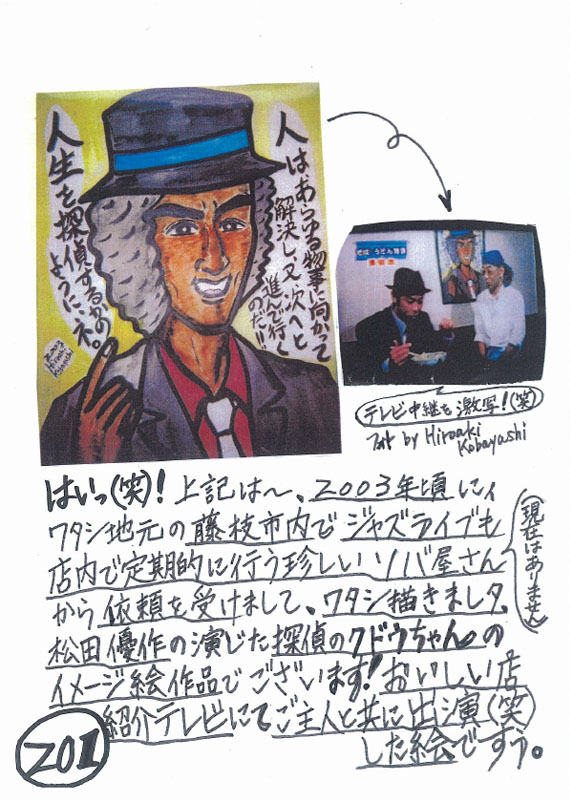 人はあらゆる物事に向かって
解決し又次へと
進んで行く
のだ!!
人生を探偵するかの
ように、ネ。
テレビ中継を激写！(笑)
Art by Hiroaki
Kobayashi
はいっ(笑)！上記は〜、2003年頃にィ
ワタシ地元の藤枝市内でジャズライブも
店内で定期的に行う珍しいソバ屋さん
(現在はありません)
から依頼を受けまして、ワタシ描きましタ、
松田優作の演じた探偵のクドウちゃん。の
イメージ絵作品でございます！おいしい店
紹介テレビにてご主人と共に出演(笑)
した絵ですう。
201